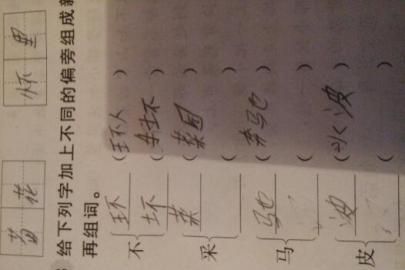 菊花 怀里
给下列字加上不同的偏旁组成新
再组词。
不 环 (环人)
坏 (坏)
采 菜 (菜园)
( )
马 驰 (奔驰)
( )
皮 波 (水波)
( )